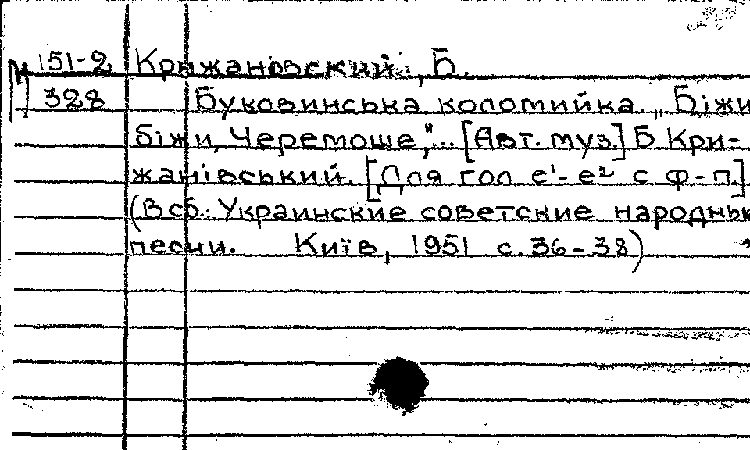 151-2 Крижановский, Б.
328 Буковинська коломийка „Біжи
біжи, Черемоше,"... [Авт. муз.] Б. Кри-
жанівський. [Для гол e¹-e² с ф-п.]
(В сб.: Украинские советские народны
песни. Київ, 1951 с. 36-38)